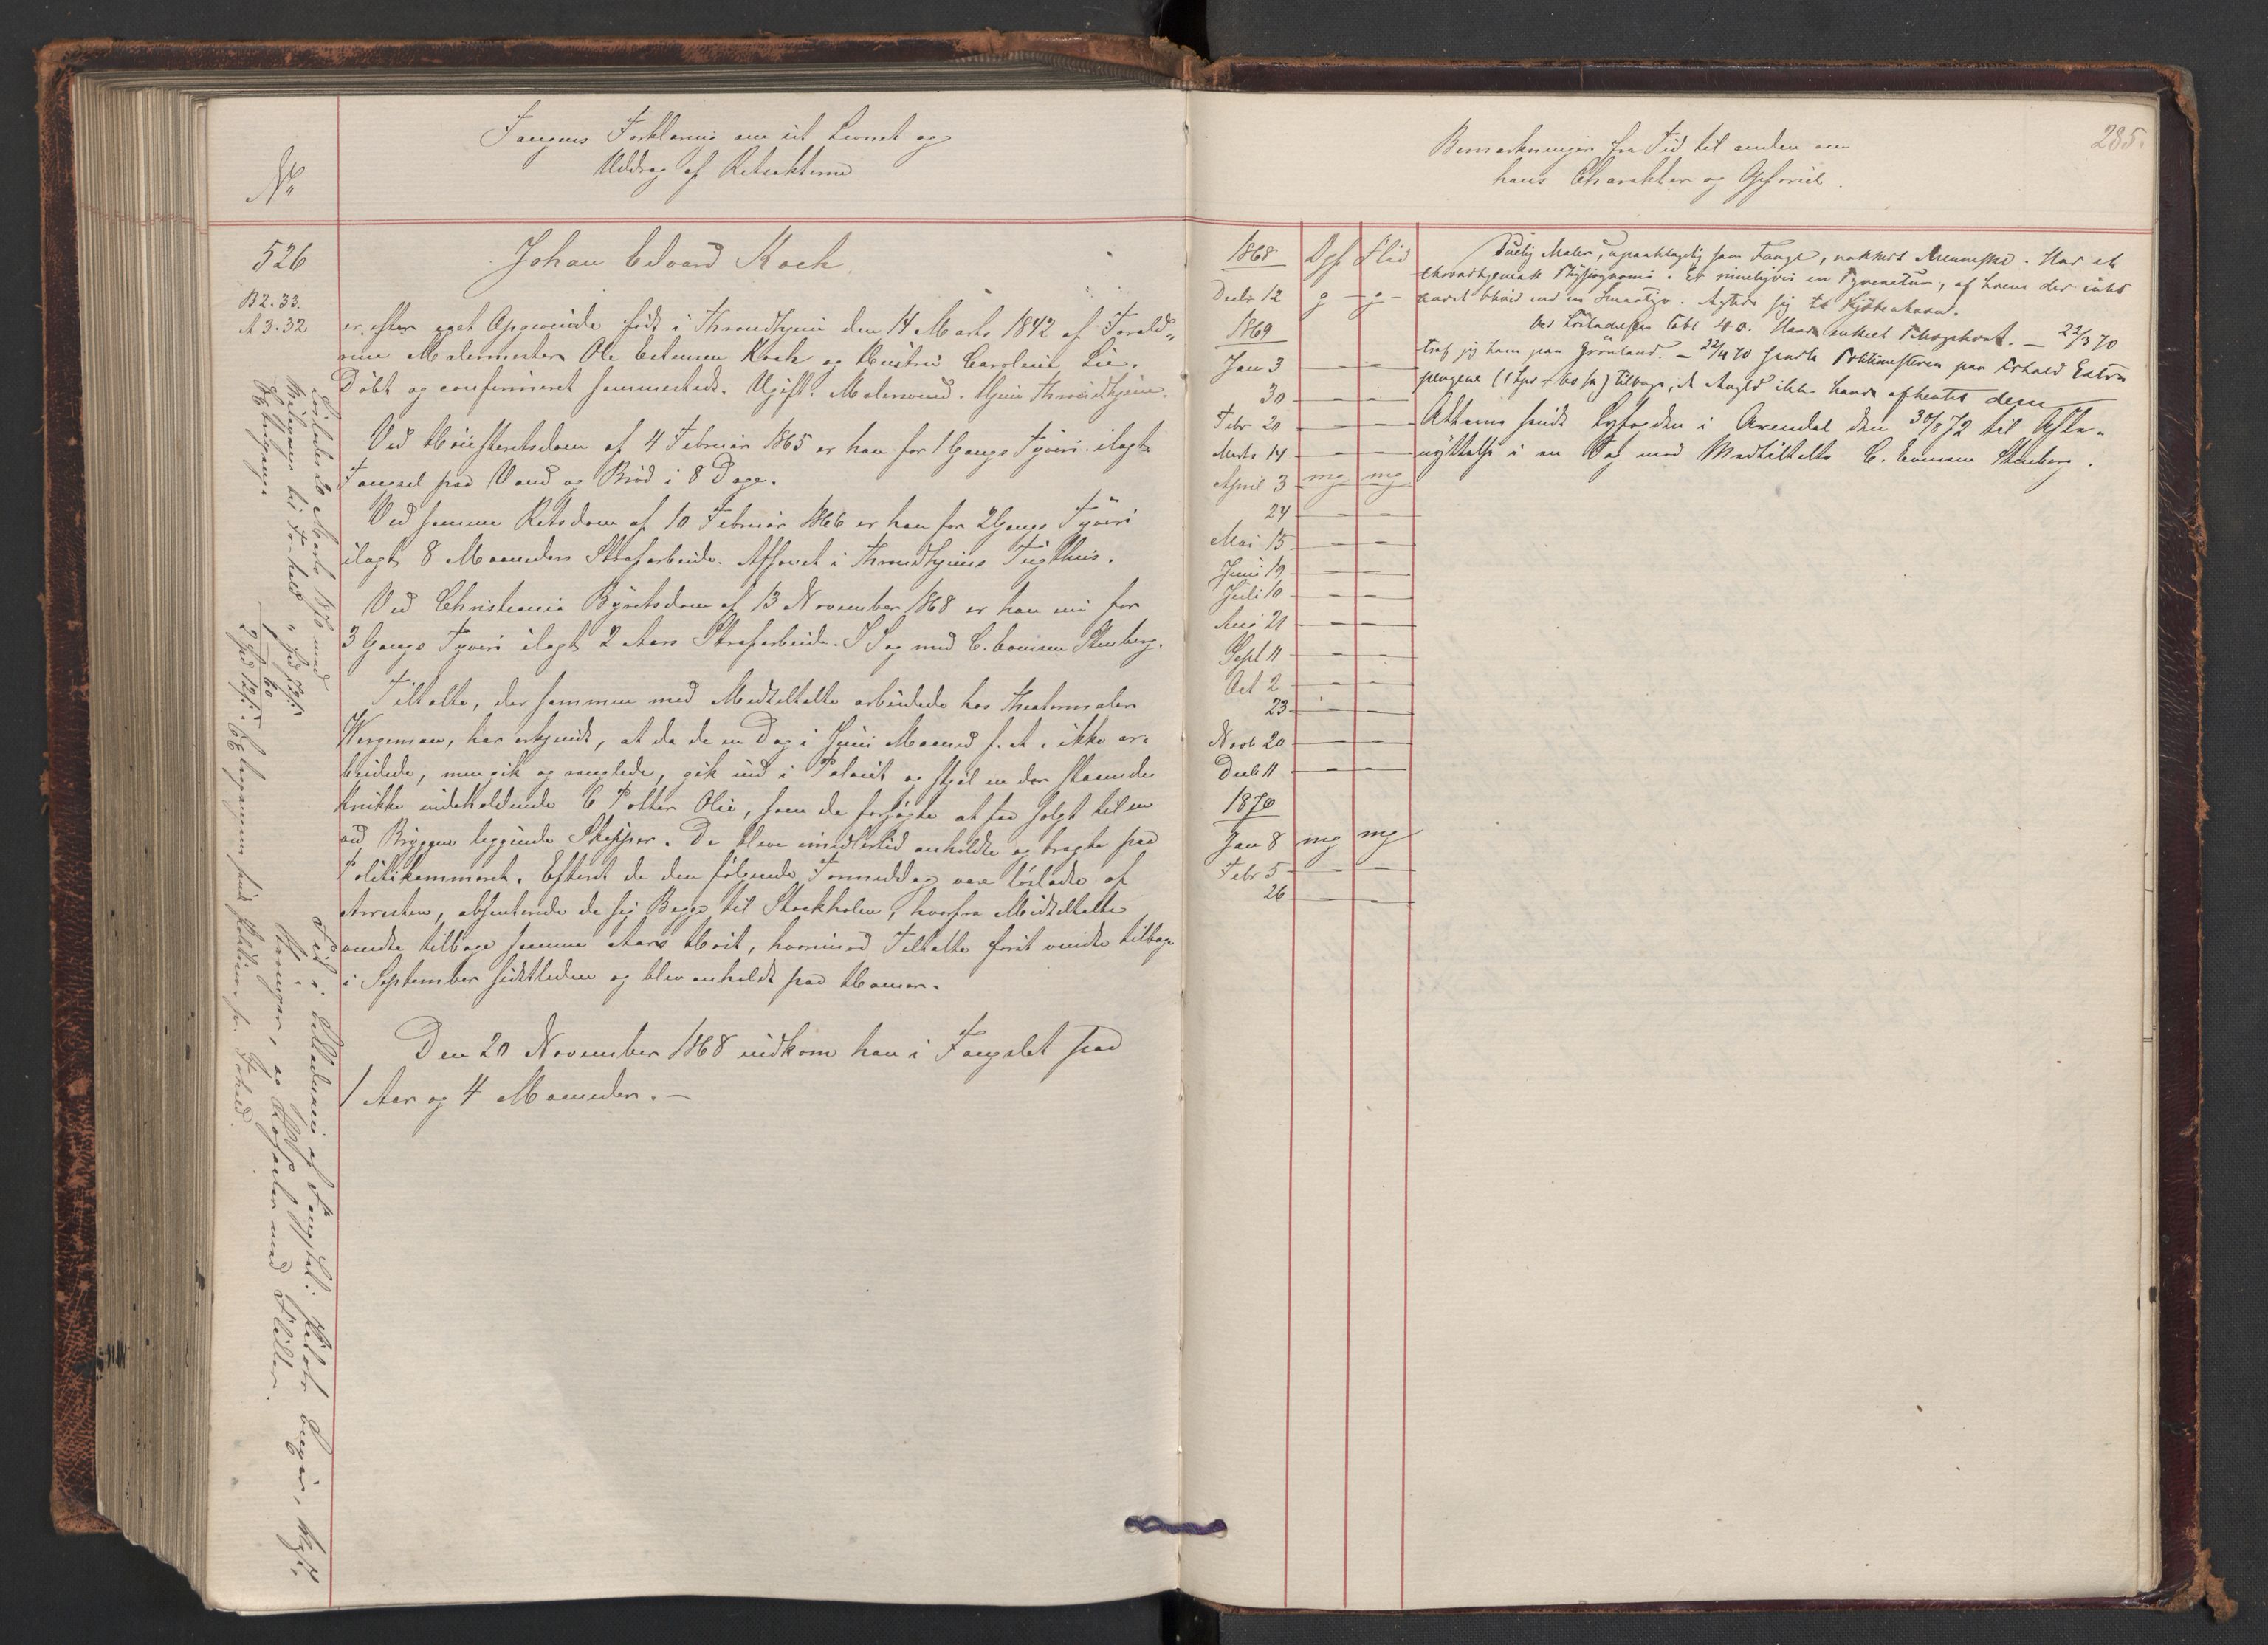 Fangens Forklaring om sit Levnet og
Uddrag af Retsakterne
No
526
B 2. 33.
A 3. 32
Johan Edvard Koch
er efter eget Opgivende født i Throndhjem den 14 Marts 1842 af Foræld„
rene Malermester Ole Estensen Koch og Hustru Caroline Lie.
Døbt og confirmeret sammesteds. Ugift. Malersvend. Hjem Throndhjem.
Ved Høiesteretsdom af 4 Februar 1865 er han for 1 Gangs Tyveri ilagt
Fængsel paa Vand og Brød i 8 Dage.
Ved samme Retsdom af 10 Februar 1866 er han for 2 Gangs Tyveri
ilagt 8 Maaneders Strafarbeide. Afsonet i Throndhjems Tugthus.
Ved Christiania Byretsdom af 13 November 1868 er han nu for
3 Gangs Tyveri ilagt 2 Aars Strafarbeide. I Sag med C. Evensen Stenberg.
Tiltalte, der sammen med Medtiltalte arbeidede hos Theatermaler
Wergmann, har erkjendt, at da de en Dag i Juni Maaned f. A. ikke ar„
beidede, men gik og ranglede, gik ind i Palæet og stjal en der staaende
Krukke indeholdende 6 Potter Olie, som de forsøgte at faa solgt til en
ved Bryggen liggende Skipper. De bleve imidlertid anholdte og bragte paa
Politikammeret. Efterat de den følgende Formiddag vare løsladte af
Arresten, absenterede de sig Begge til Stockholm, hvorfra Medtiltalte
vendte tilbage samme Aars Høst, hvorimod Tiltalte først vendte tilbage
i September sidstleden og blev anholdt paa Hamar.
Den 20 November 1868 indkom han i Fængslet paa
1 Aar og 4 Maaneder. —
Løslades 20 Marts 1870 med
til Forhold
Extrapenge
1 - 60
2 Spd 12 s.
Flid i Udførelsen af Fængslets
Bemærkninger fra Tid til anden om
hans Charakter og Opførsel.
285.
1868 Opf Flid
Decbr 12 g - g -
1869
Jan 3 — —
30 — —
Febr 20 — —
Marts 14 — —
April 3 mg mg
24 — —
Mai 15 — —
Juni 19 — —
Juli 10 — —
Aug 21 — —
Sept 11 — —
Oct 2 — —
23 — —
Novb 20 — —
Decb 11 — —
1870
Jan 8 mg mg
Febr 5 — —
26 — —
Duelig Maler, upaaklagelig som Fange, vakkert Menneske. Har et
Physiognomi. Er rimeligvis en Tyvenatur, af hvem der intet
andet blive end en Smaatyv. Agtede sig til Kjøbenhavn.
Ved Løsladelsen talt 4 o. — 22/3 70
traf jeg ham paa Grønland. — 22/4 70 sendte Politimesteren paa Forhold Extra
pengene (1 Spd - 60 s) tilbage, da Angld ikke havde afhentet dem
Attesten sendt Byfogden i Arendal den 30/8 72 til Afbe„
nyttelse i en Sag mod Medtiltalte C. Evensen Stenberg.